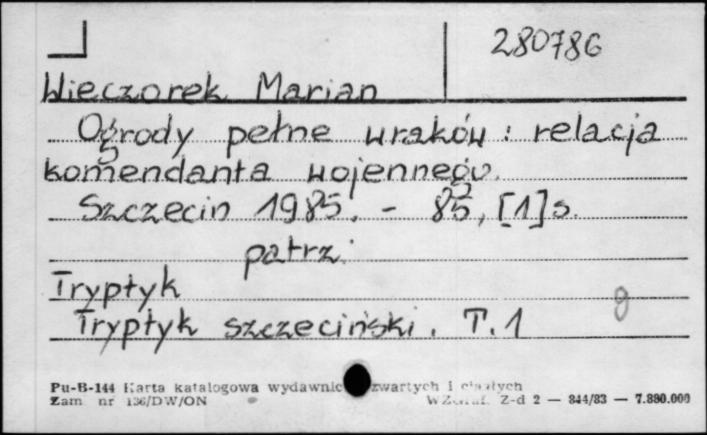 280786
Wieczorek Marian
Ogrody pełne wraków : relacja
komendanta wojennego.
Szczecin 1985. - 85, [1] s.
patrz:
Tryptyk
Tryptyk szczeciński. T. 1
Pu-B-144 Karta katalogowa wydawnic zwartych i
Zam. nr 136/DW/ON Z-d 2 — 844/83 — 7.880.000